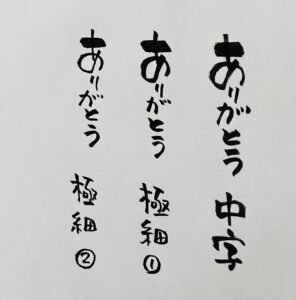 ありがとう 中字
ありがとう 極細①
ありがとう 極細②